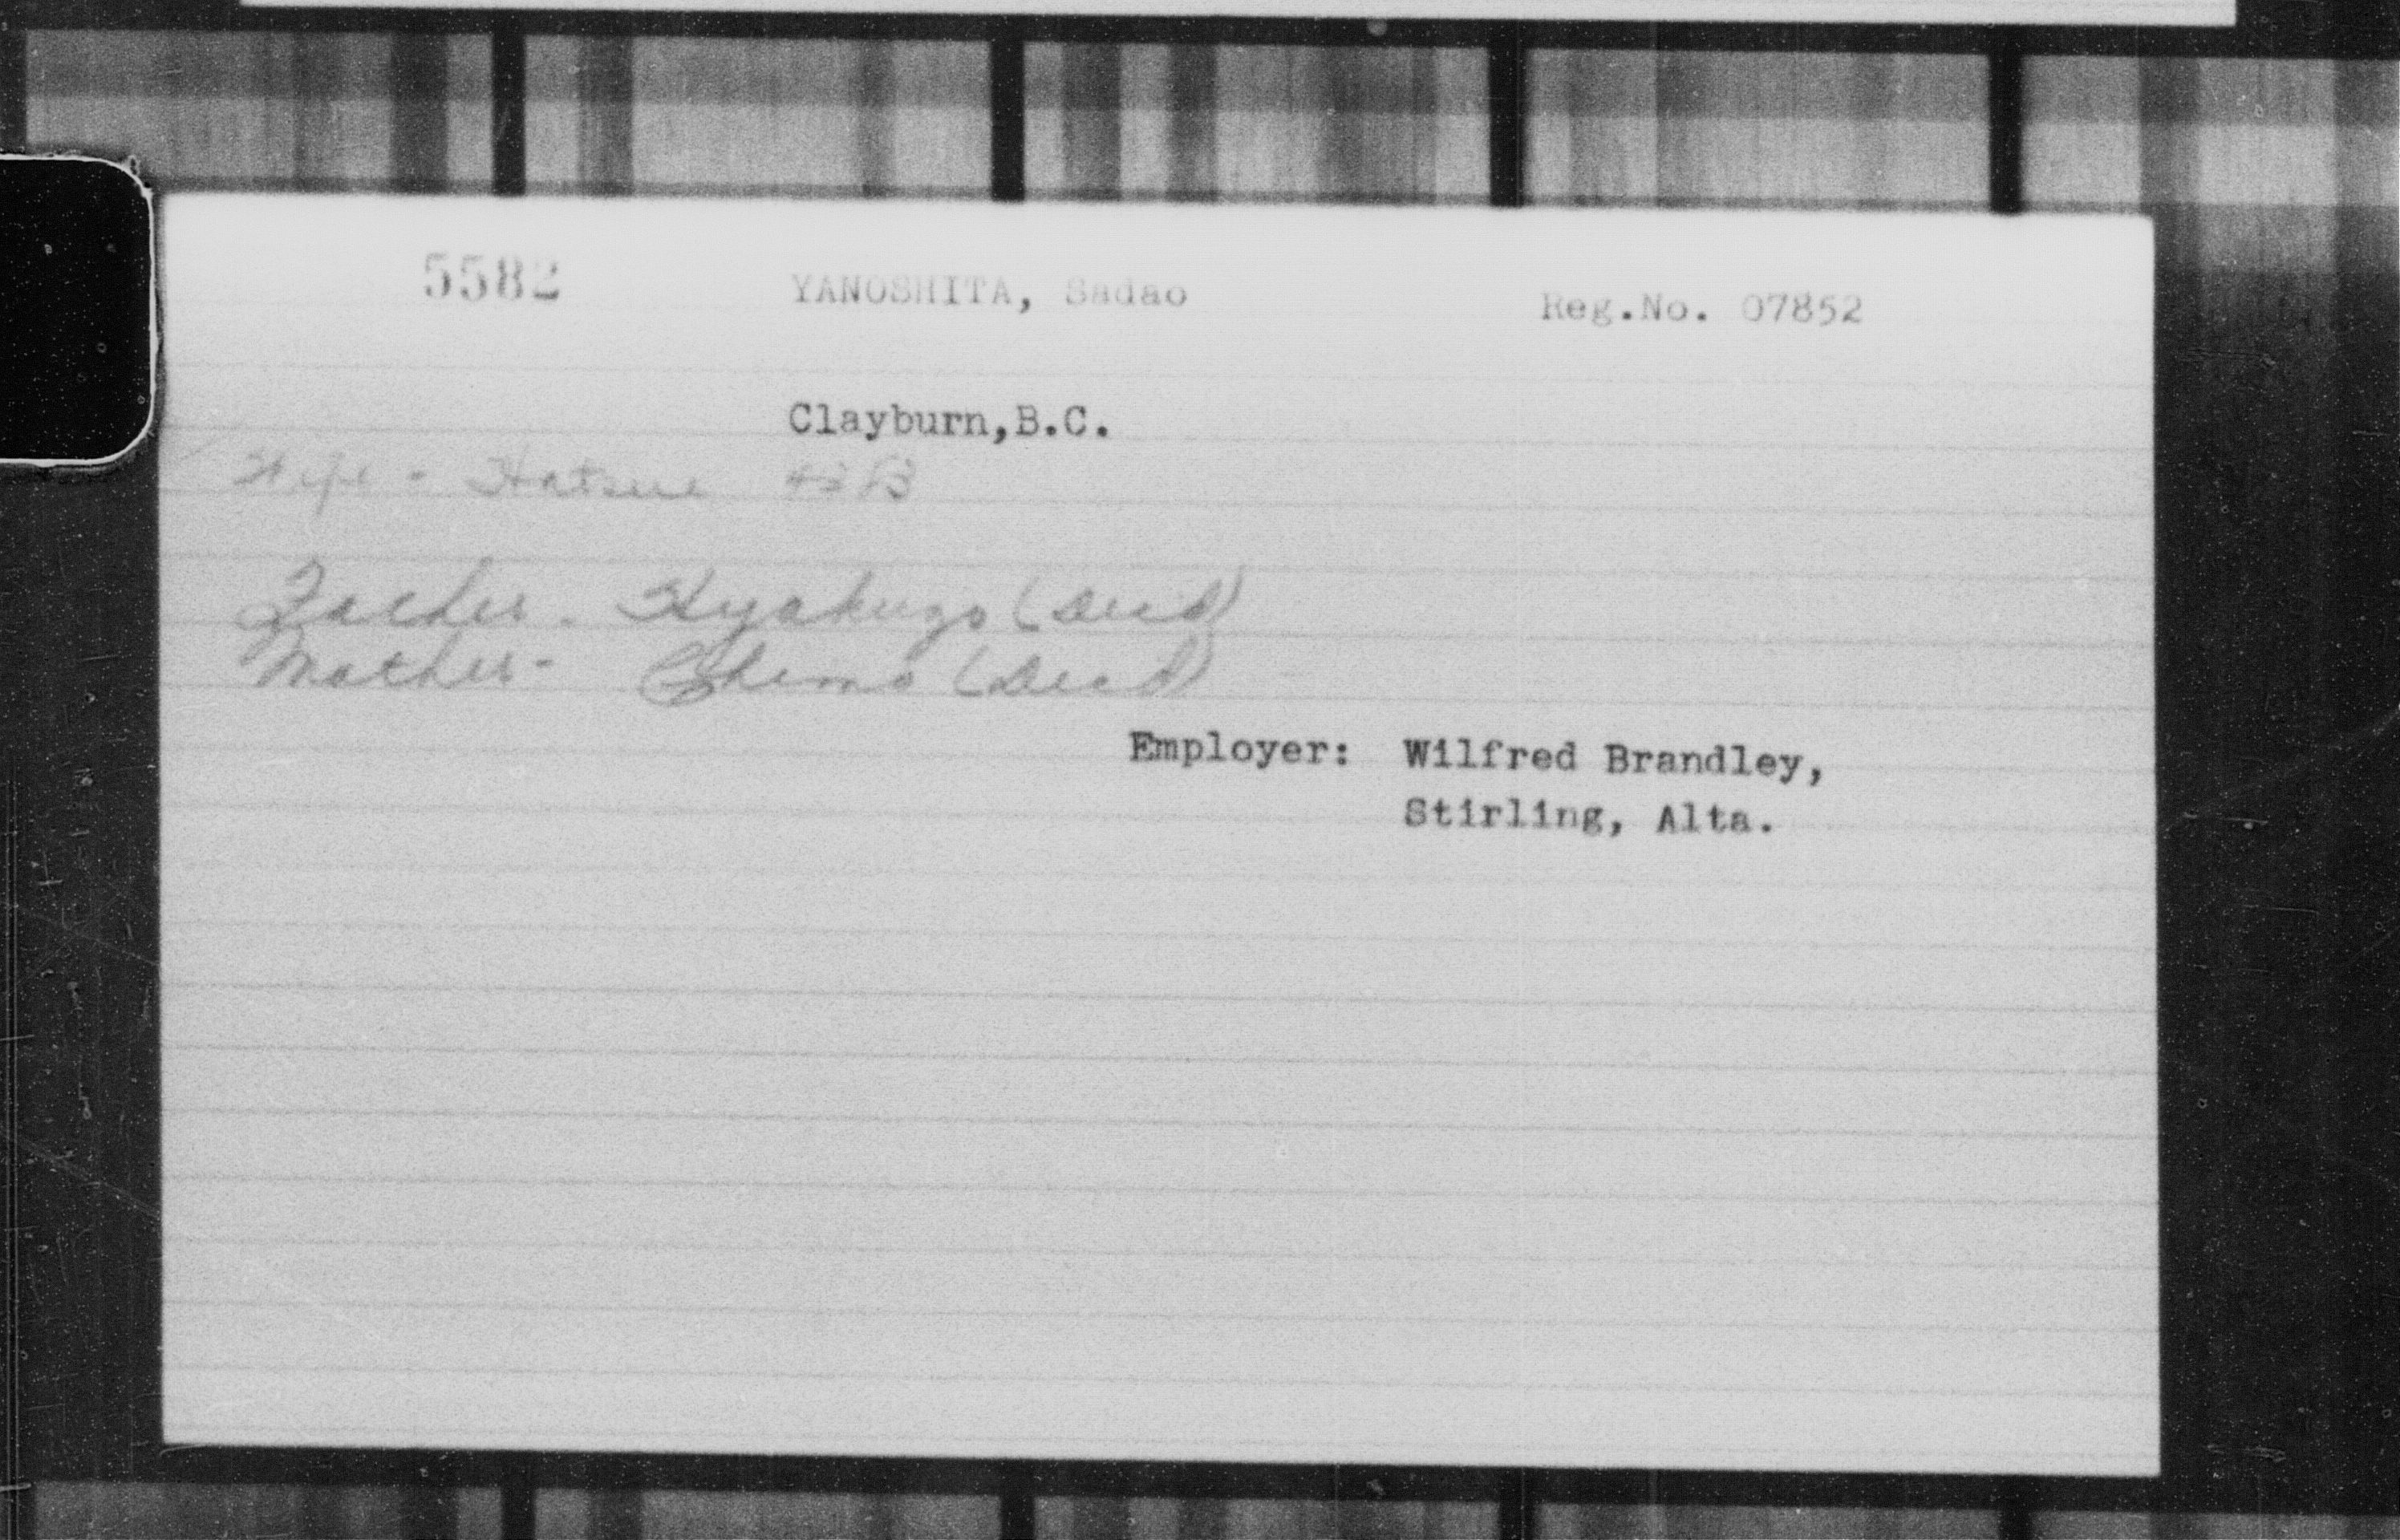 5582 YANOSHITA, Sadao Reg.No. 07852
Clayburn,B.C.
Wife - Hatsue
Father - Hyakuzo (Dead)
Mother - (Dead)
Employer: Wilfred Brandley,
Stirling, Alta.